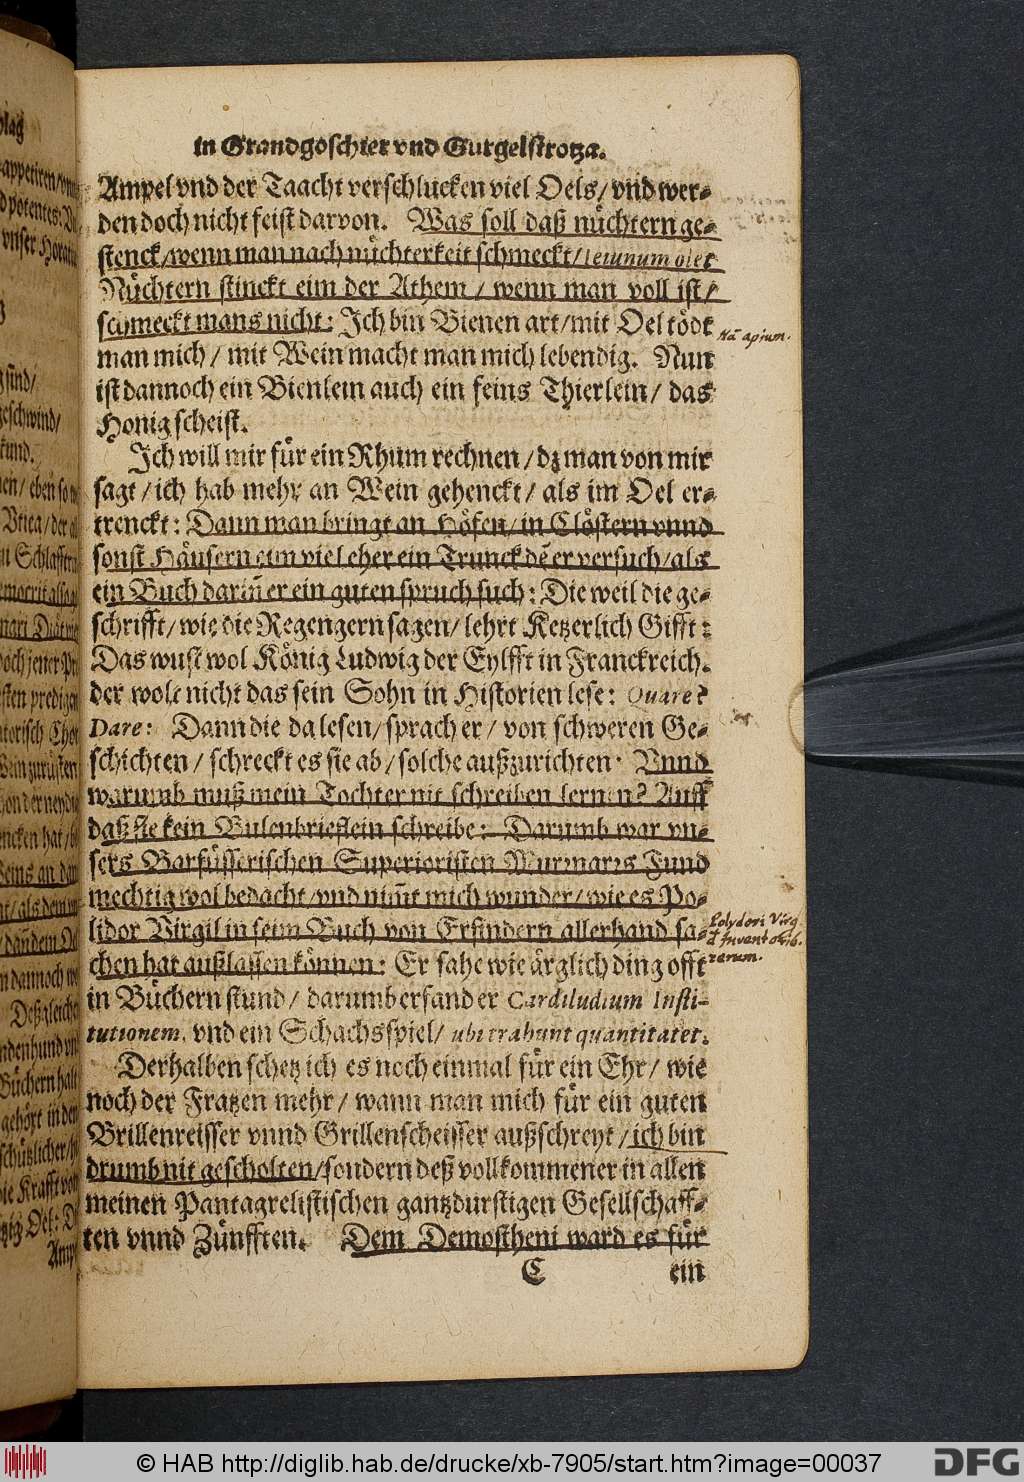 in Grandgoschier vnd Gurgelstrotza.
Ampel vnd der Taacht verschlucken viel Oels / vnd wer-
den doch nicht feist darvon. Was soll daß nüchtern ge-
stenck / wenn man nach nüchterkeit schmeckt / Ieiunum olet
Nüchtern stinckt eim der Athem / wenn man voll ist /
schmeckt mans nicht: Ich bin Bienen art / mit Oel tödt
man mich / mit Wein macht man mich lebendig. Nun
ist dannoch ein Bienlein auch ein feins Thierlein / das
Honig scheist.
Ich will mir für ein Rhum rechnen / dz man von mir
sagt / ich hab mehr an Wein gehenckt / als im Oel er-
trenckt: Dann man bringt an Höfen / in Clöstern vnnd
sonst Häusern eim viel eher ein Trunck dẽ er versuch / als
ein Buch dariñ er ein guten spruch such: Die weil die ge-
schrifft / wie die Regengern sagen / lehrt Ketzerlich Gifft:
Das wust wol König Ludwig der Eylfft in Franckreich.
der wolt nicht das sein Sohn in Historien lese: Quare?
Dare: Dann die da lesen / sprach er / von schweren Ge-
schichten / schreckt es sie ab / solche außzurichten. Vnnd
warumb muß mein Tochter nit schreiben lernen? Auff
daß sie kein Bulenbrieflein schreibe: Darumb war vn-
sers Barfüsserischen Superioristen Murmarrs Fund
mechtig wol bedacht / vnd nim̃t mich wunder / wie es Po-
lidor Virgil in seim Buch von Erfindern allerhand sa-
chen hat außlassen können: Er sahe wie ärglich ding offt
in Büchern stund / darumb erfand er Cardiludium Insti-
tutionem, vnd ein Schachsspiel / ubi trahunt quantitatet.
Derhalben schetz ich es noch einmal für ein Ehr / wie
noch der Fratzen mehr / wann man mich für ein guten
Brillenreisser vnnd Grillenscheisser außschreyt / ich bin
drumb nit gescholten / sondern deß vollkommener in allen
meinen Pantagrelistischen gantzdurstigen Gesellschaff-
ten vnnd Zünfften. Dem Demostheni ward es für
C ein
Nã apium.
Polydori Virg.
rerum.
appetiren / vnn
potentes:
vnser Horatiu
sind /
geschwind /
en / eben so
Vtica / der
Schlafftru
Diät
doch jener
sten predigen
zurüsten
hat /
an
als dem
dan̄ dem Oe
dannoch
Deßgleiche
hund vn
Büchern halt
gehört in der
schützlicher /
ie Krafft von
Oel: D
Amp
© HAB http://diglib.hab.de/drucke/xb-7905/start.htm?image=00037
DFG